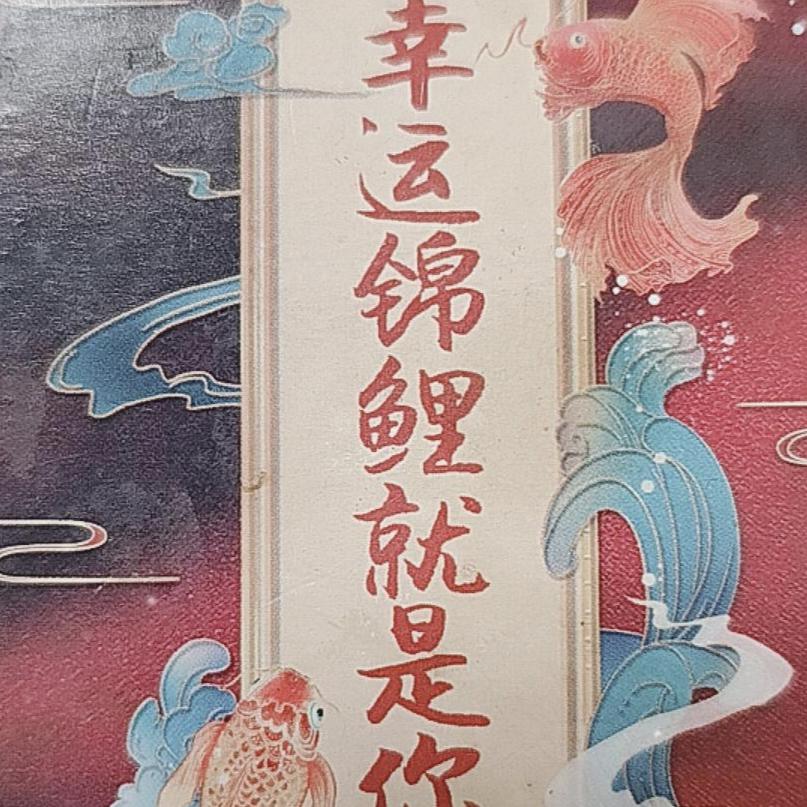 幸运锦鲤就是你